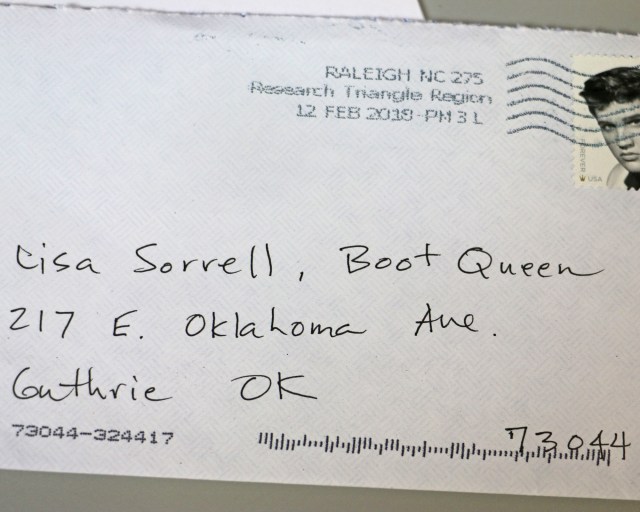 RALEIGH NC 275
Research Triangle Region
12 FEB 2018 PM 3 L
FOREVER
USA
Lisa Sorrell, Boot Queen
217 E. Oklahoma Ave.
Guthrie OK
73044
73044-324417